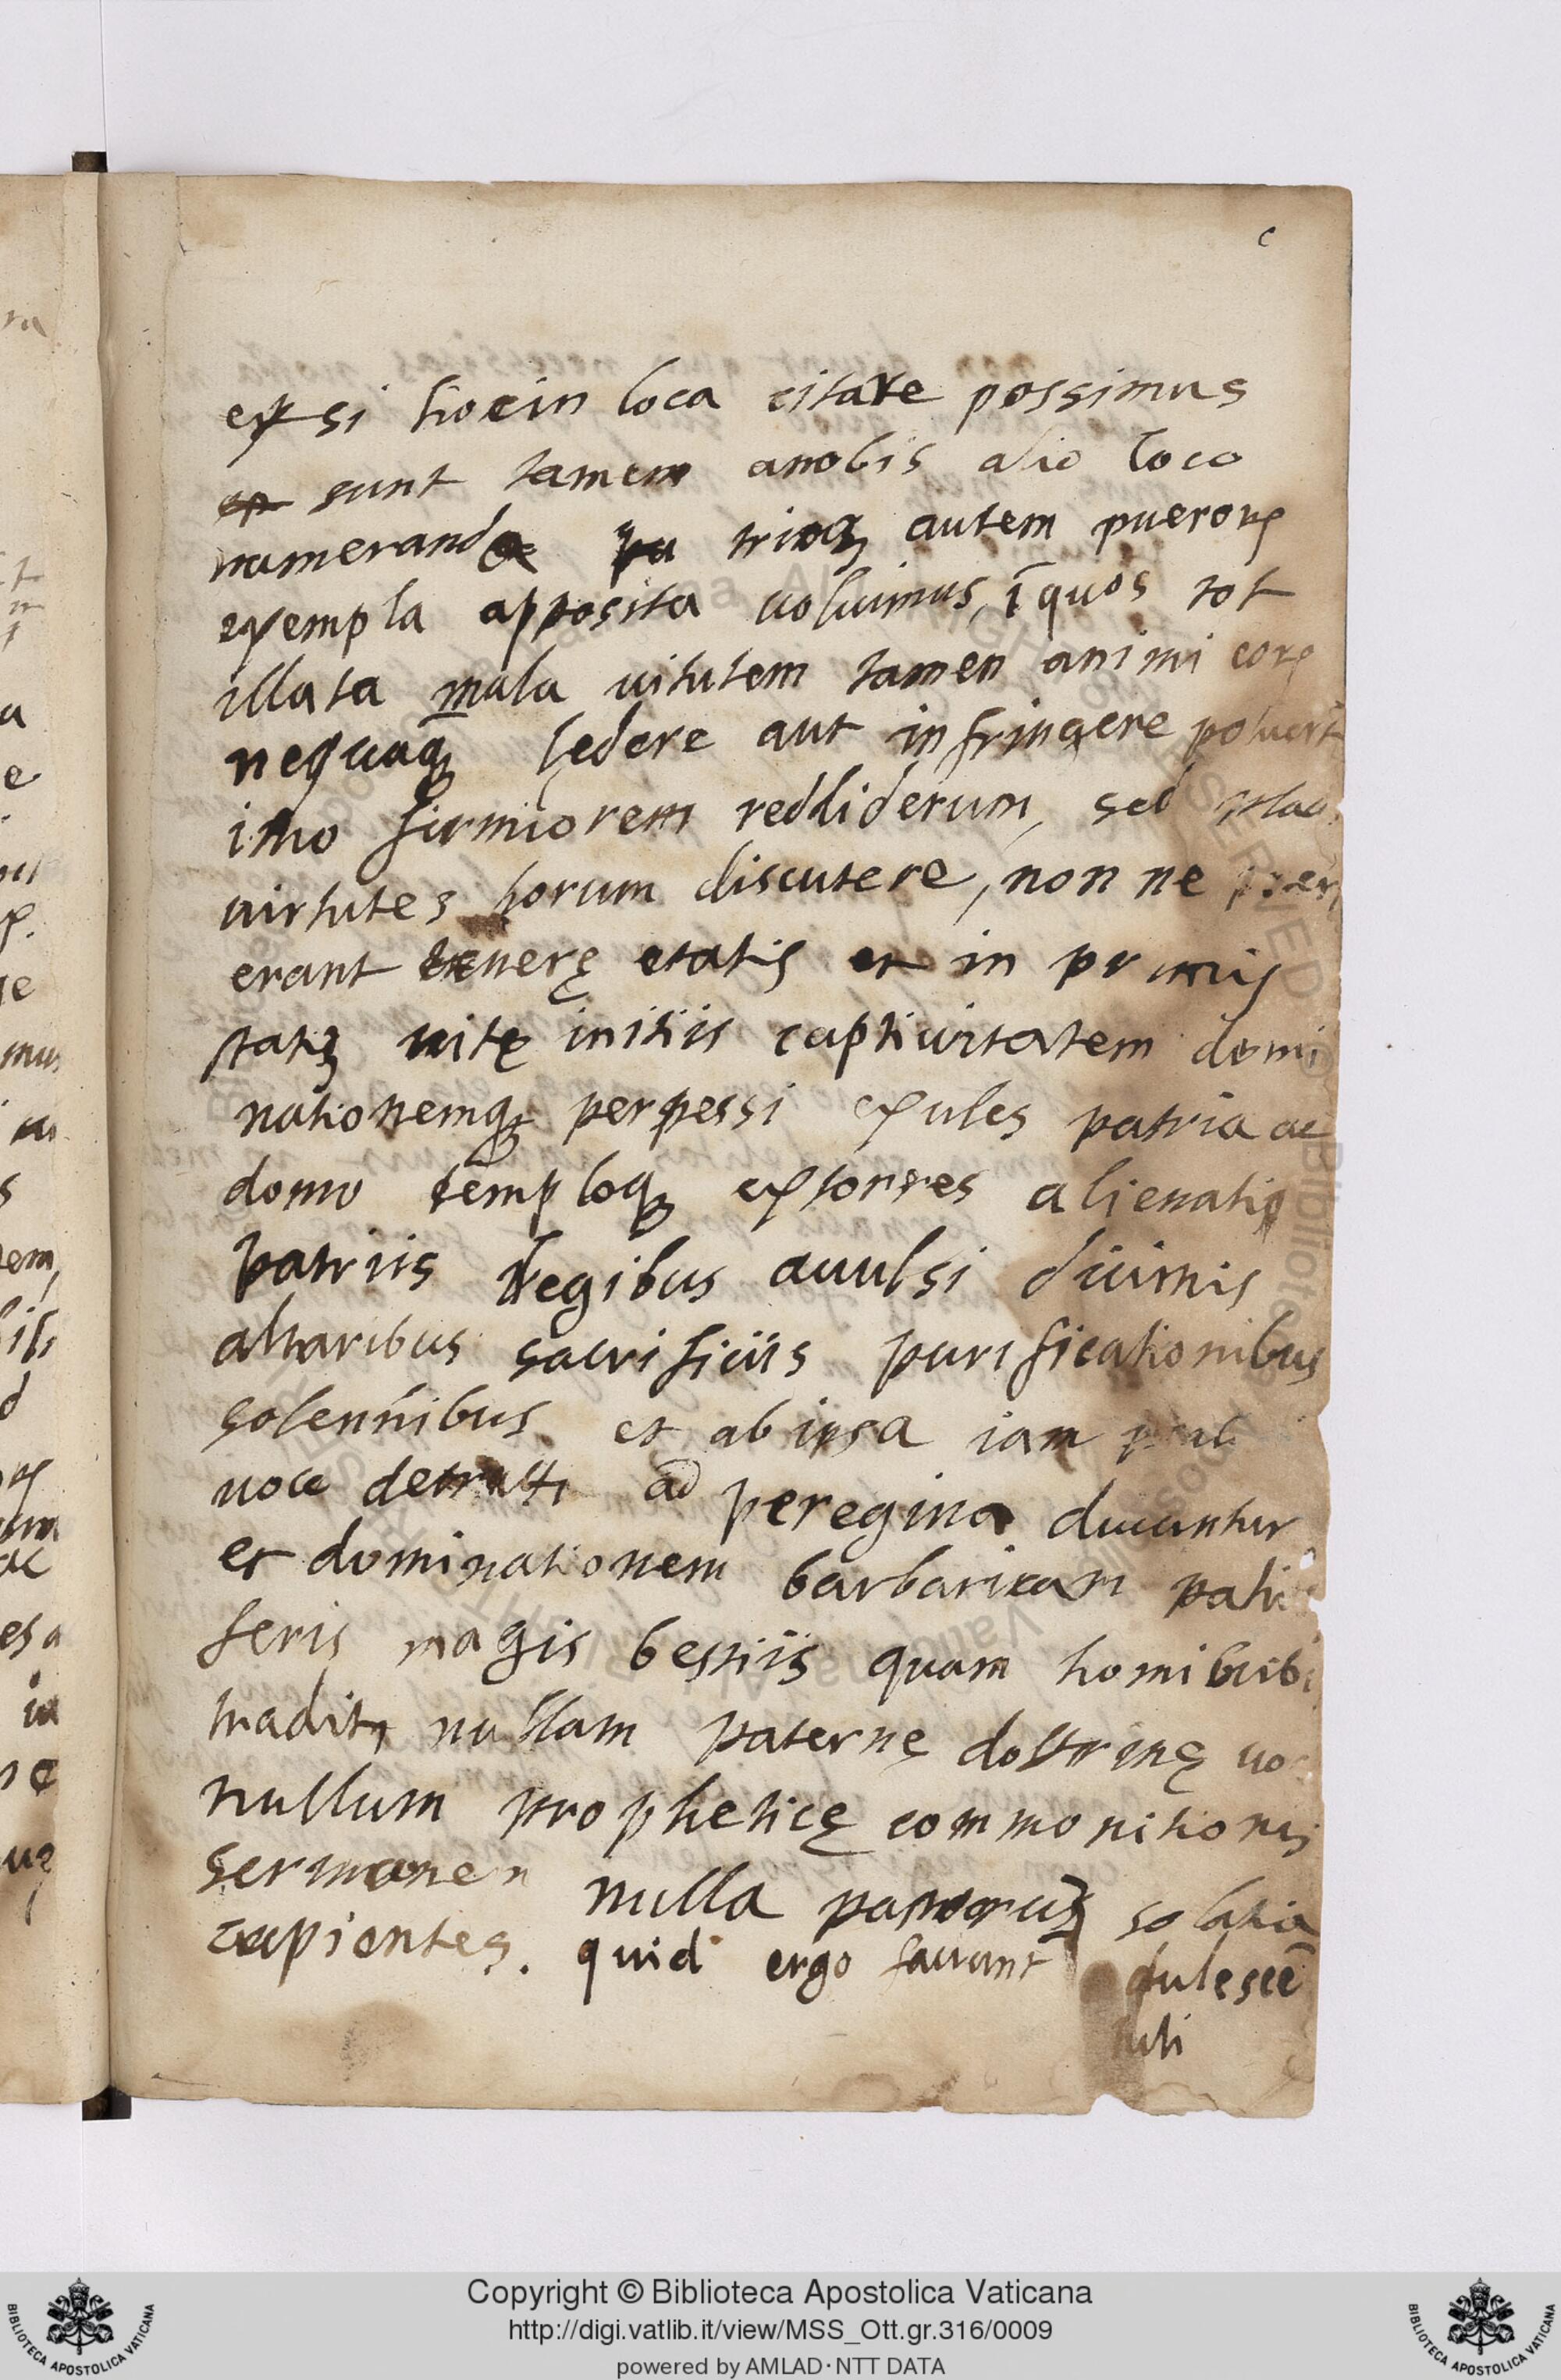 c
et si hoc in loca citare possimus
sunt tamem anobis alio loco
numeranda triũq; autem pueroꝝ
exempla apposita uoluimus, ĩ quos tot
illata mala uitutem tamen animi eoꝝ
nequaq̃; lędere aut infringere potuert
imo firmiorem reddiderum, sed
uirtutes horum discutere, non ne
erant tenerę etatis et in primis
statiʒ uitę initiis captiuitatem domi
nationemq; perpessi exules patria ac
domo temploq; extorres alienatiq
patriis legibus auulsi diuinis
altaribus sacrificiis purificationibus
solennibus et ab ipsa iam
uoce detracti ad peregina ducuntur
et dominationem barbaricam
feris magis bestiis quam homibusbi
traditi nullam paternę doctrinę
nullum propheticę commonitionis
sermonen nulla pastoruʒ solatia
capientes. quid ergo faciunt dulescẽ
tuli
Copyright © Biblioteca Apostolica Vaticana
http://digi.vatlib.it/view/MSS_Ott.gr.316/0009
powered by AMLAD·NTT DATA
BIBLIOTECA APOSTOLICA VATICANA
BIBLIOTECA APOSTOLICA VATICANA